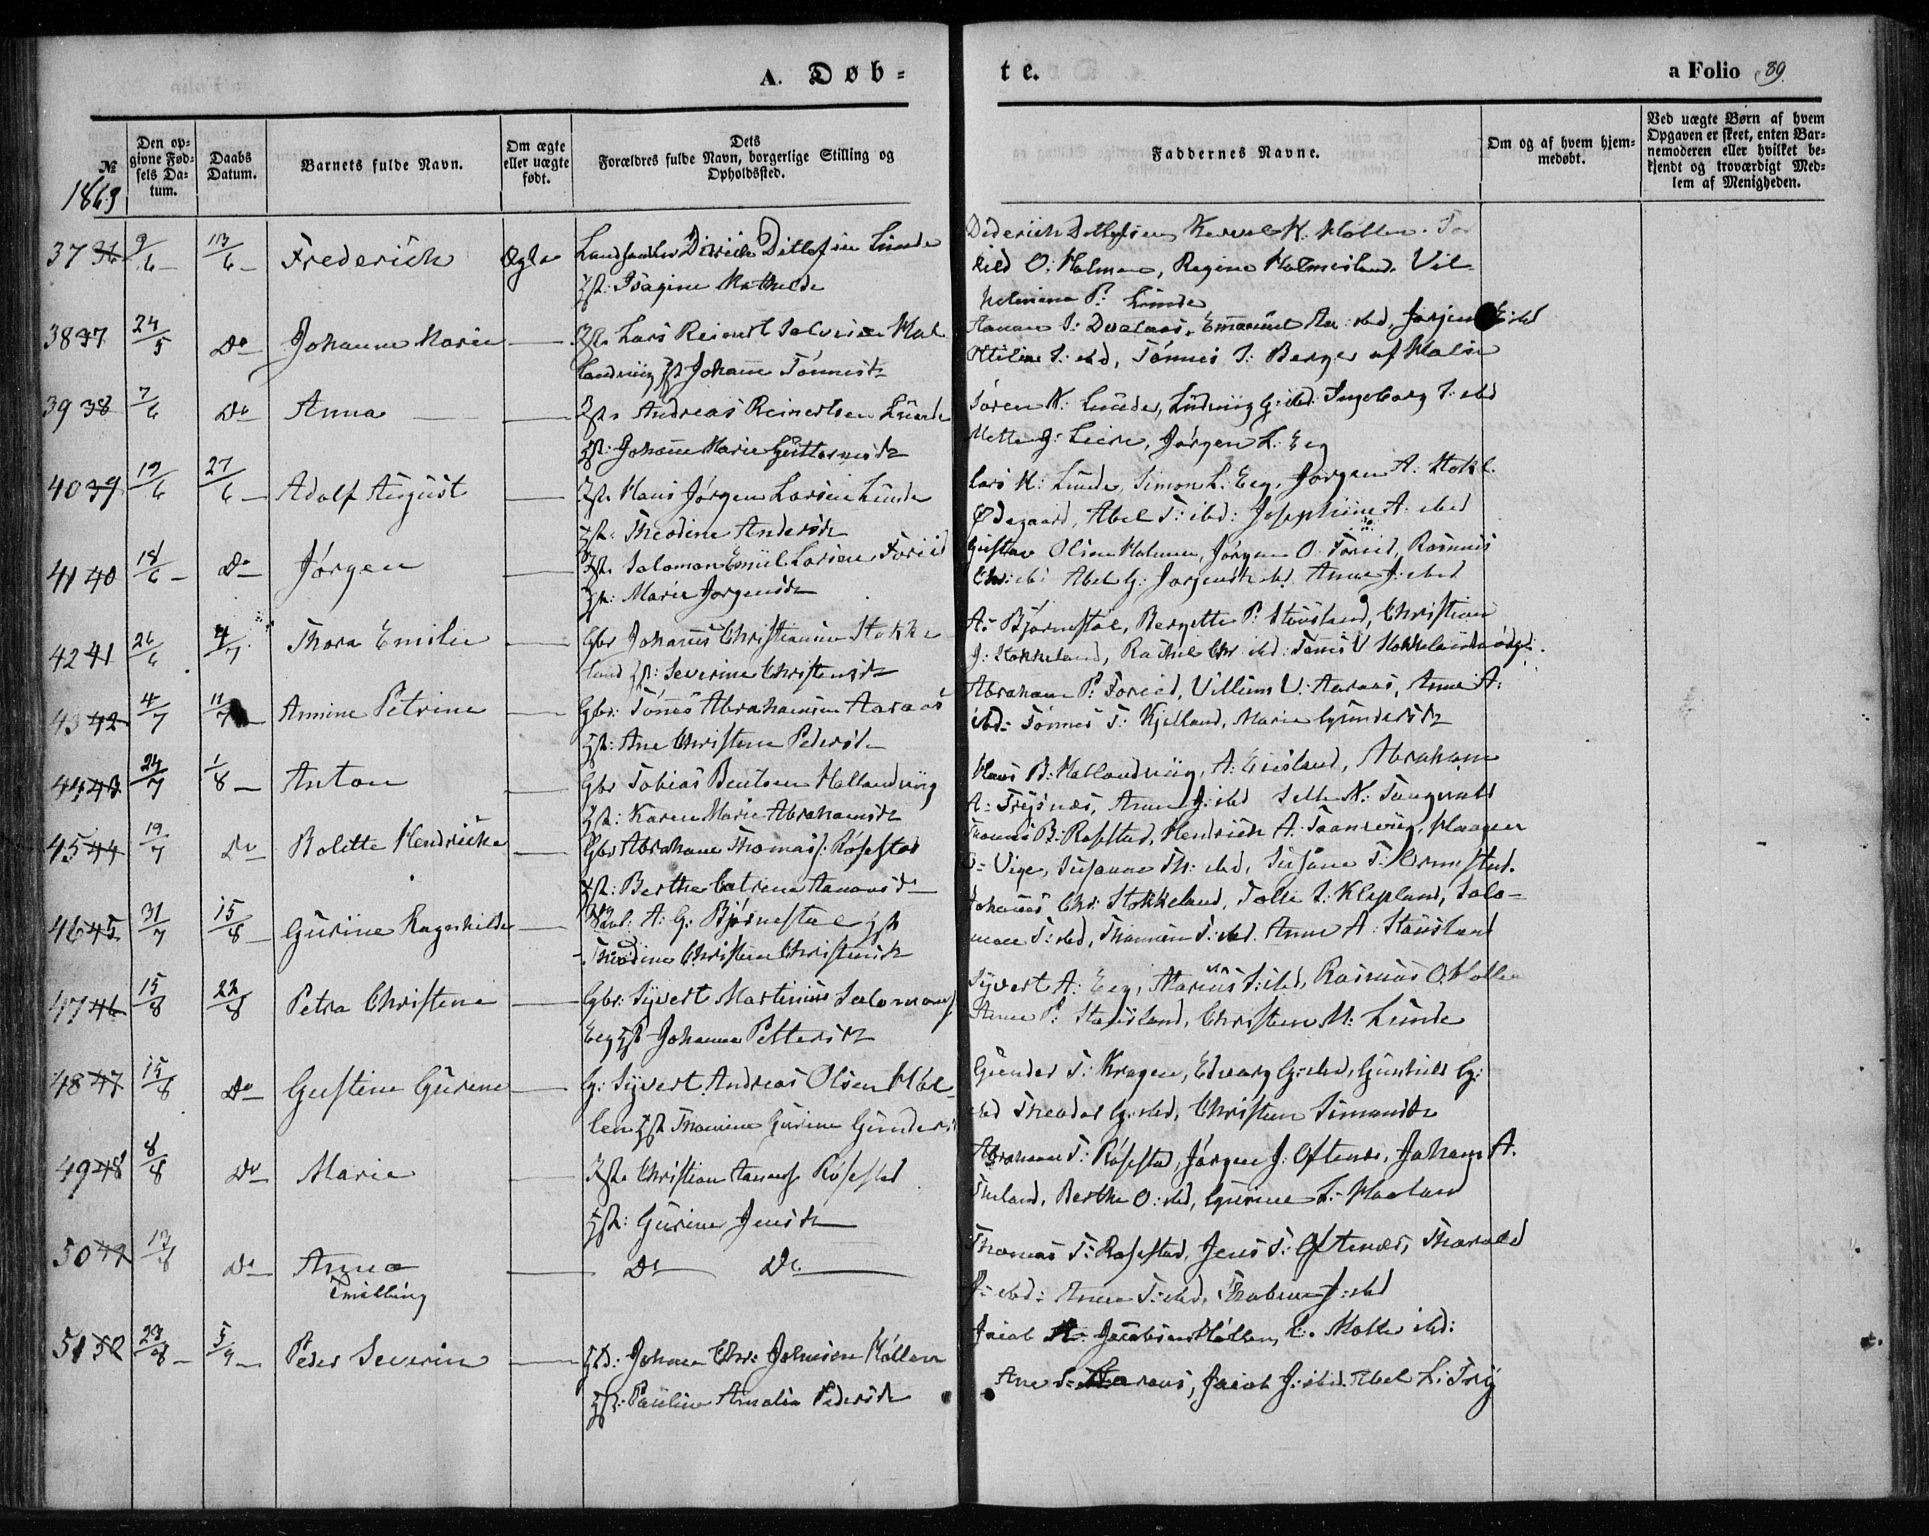 A. Døb-
te.
a Folio 89.
№
1869
Den op-
givne Fød-
sels Da-
tum.
Daabs
Datum.
Barnets fulde Navn.
Om ægte
eller uægte
født.
Dets
Forældres fulde Navn, borgerlige Stilling og
Opholdssted.
Faddernes Navne.
Om og af hvem hjem-
medøbt.
Ved uægte Børn af hvem
Opgaven er skeet, enten Bar-
nemoderen eller hvilket be-
kjendt og troværdigt Med-
lem af Menigheden.
37 36 9/6 13/6 Frederich Ægte Ditlefsen Lunde
Mathilde
Diderich Detlefsen
kild O: Holmen, Regine Holmesland. Vil-
helmine P: Lunde
38 37 24/5 Do Johanne Marie Lars Reinert Salvesen
Johanne Tønnesd.
Emanuel Aa: ibd, Jørgen E: ibd
ibd, Tønnes S: Berge
39 38 7/6 Do Anna Andreas Reinertsen Lunde
Johanne Marie Guttormsd.
Søren K: Lunde, Ludvig G: ibd. Ingeborg S: ibd
Mette J: Leire, Jørgen L: Eeg
40 39 19/6 27/6 Adolf August Hans Jørgen Larsen Lunde
Theodine Andersd.
Lars H: Lunde, Simon L: Eeg, Jørgen A: Stokl.
Ødegaard, Abel T: ibd: Josephine A: ibd
41 40 18/6 Do Jørgen Salomon Emil Larsen Foried
Marie Jørgensd.
Gustav Olsen Holmen, Jørgen O: Foried, Rasmus
Chr: ibd Abel G: Jørgensd. ibd. Anne J: ibd
42 41 26/6 4/7 Thora Emilie Gbr Johannes Christiansen Stokke
land Severine Christensd.
A: Bjørnestøl, Bergette P: Stausland, Christian
J: Stokkeland, Rachel Chr ibd: Tønnes V Stokkeland
43 42 4/7 11/7 Annine Petrine Gbr: Tønnes Abrahamsen Aaraas
Ane Christine Pedersd.
Abraham P: Foried, Villum V: Aaraas, Anne A:
ibd: Tønnes T: Kjelland, Marie Gundersd.
44 43 24/7 1/8 Anton Gbr Tobias Bentsen Hallandviig
Karen Marie Abrahamsd.
Hans B: Hallandviig, A: Abraham
A: Frøysnæs, Anne J: ibd
45 44 19/7 Do Bolette Hendrikke Gbr Abraham Thomass: Røsestad
Berthe Catrine Aanonsd.
Thomas B: Røsestad, Hendrich A: Haagen
O: Vige, Susanne Th: ibd, Susanne T:
46 45 31/7 15/8 Gurine Ragnhilde A: G: Bjørnestøl
Theodine Christine Christensd.
Johannes Chr: Stokkeland, Tolle S: Klepland, Salo-
mon T: ibd, Thomine T: ibd. Anne A: Stausland
47 46 15/8 22/8 Petra Christine Gbr: Syvert Martinius Salomons:
Eeg Johanne Pettersd.
Syvert A: Eeg, Marius S: ibd, Rasmus O: Hollen
Anne P: Stausland, Christine M: Lunde
48 47 15/8 Do Gustine Gurine G: Syvert Andreas Olsen Høl-
len Thomine Gurine Gundersd.
Gunder T: Kragen, Edvard G: ibd, Gunhild G:
ibd Theodor G: ibd, Christine Simonsd.
49 48 8/8 Do Marie Christian Aanens: Røsestad
Gurine Jensd.
Abraham T: Røsestad, Jørgen J: Oftenæs, Johan A.
Berthe O: ibd, Gurine L: Haaland
50 49 13/8 Do Anna Do Do
Tvilling
Thomas T: Røsestad, Jens T: Oftenæs, Thorvald
P: ibd: Anne T: ibd, J: ibd
51 50 23/8 5/9 Peder Severin Johan Chr: Johnsen Høllen
Pauline Amalia Pedersd.
Jacob Jacobsen Høllen, L. Møller ibd:
Ane S: Aaraas, Jacob J: ibd. Abel L: